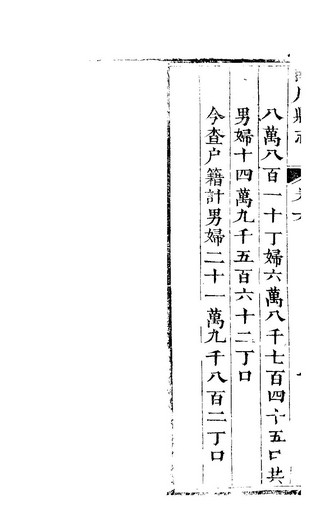 八萬八百一十丁婦六萬八千七百四十五口共
男婦十四萬九千五百六十二丁口
今查户籍計男婦二十一萬九千八百二丁口